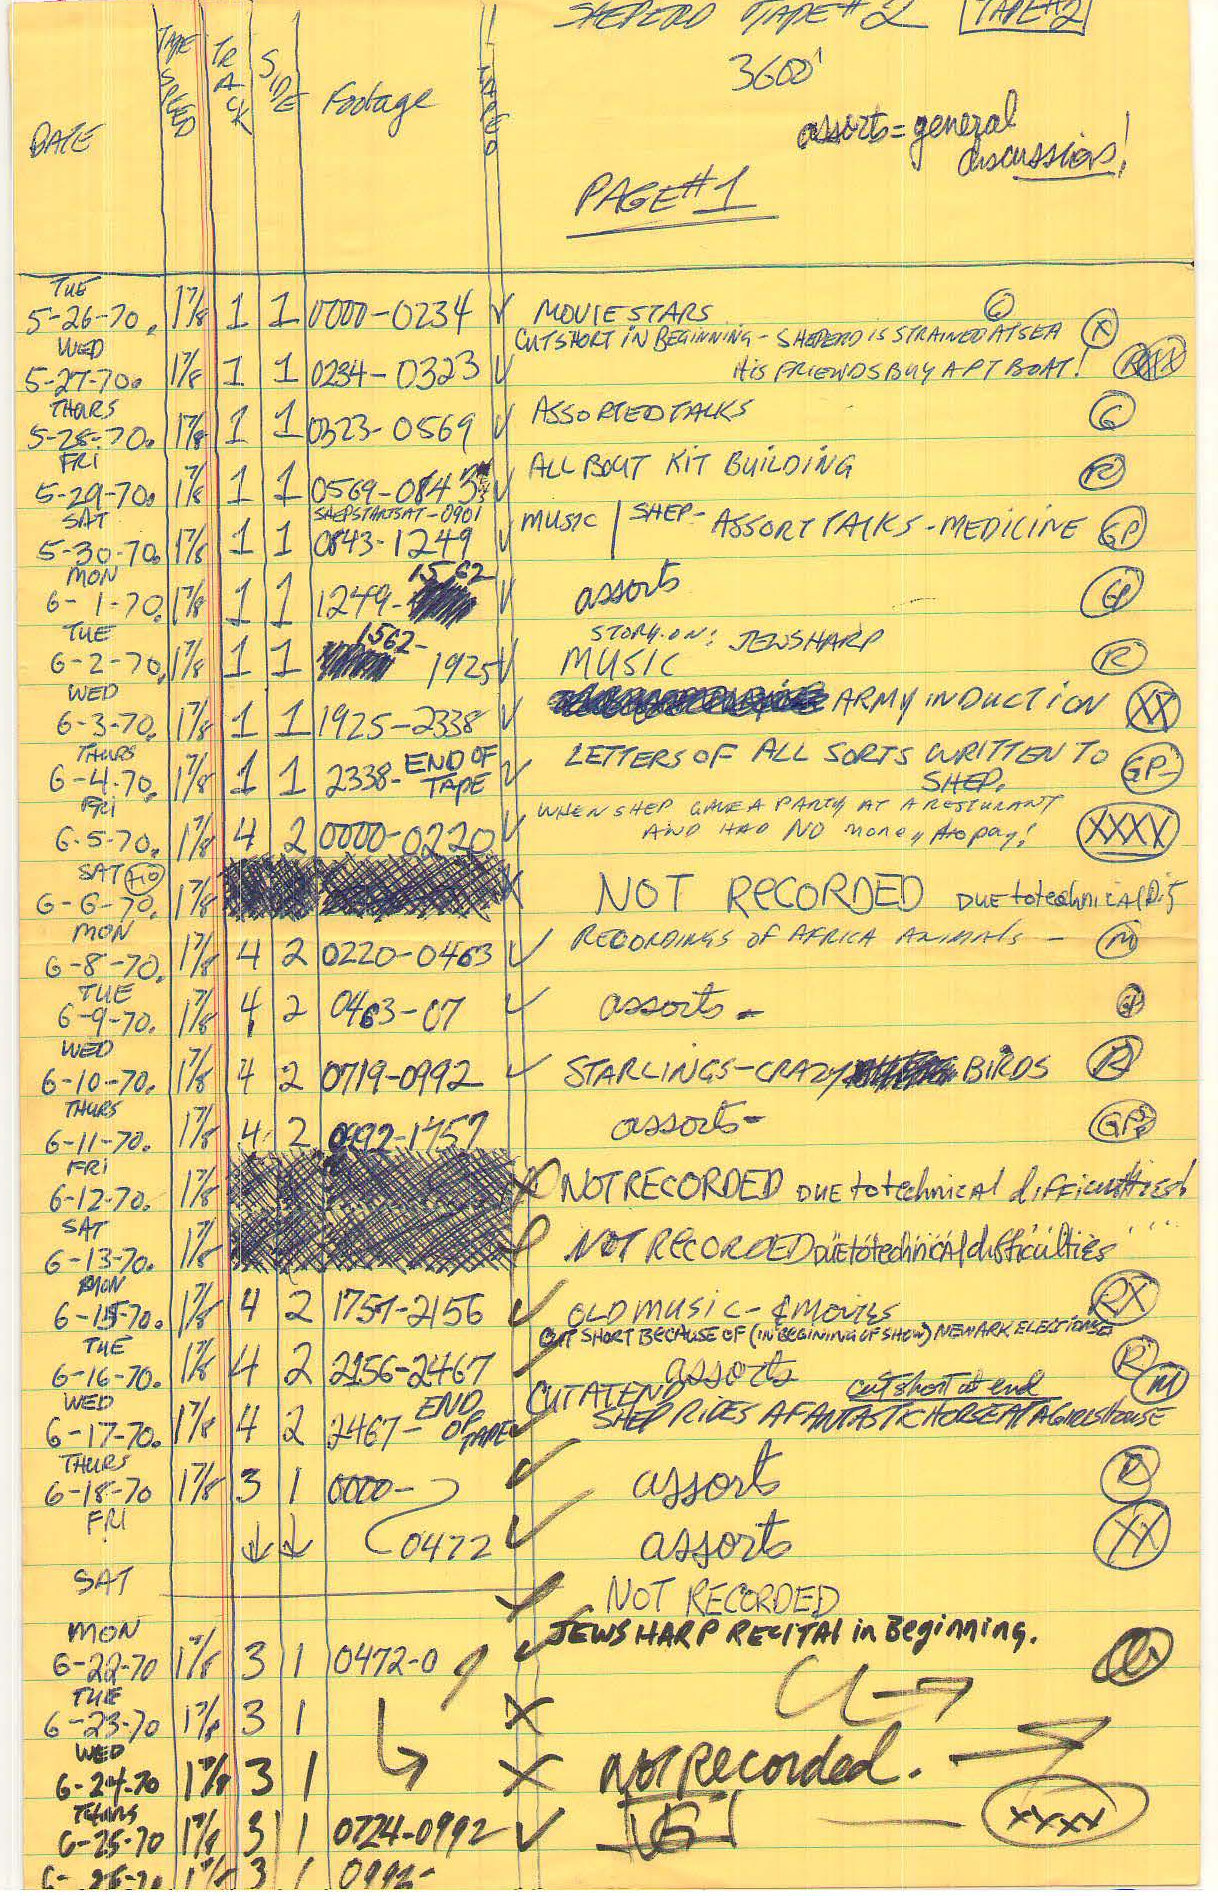 SHEPERD TAPE #2 TAPE #2
3600'
assorts = general
discussions!
DATE TAPE SPEED TRACK SIDE Footage
PAGE #1
TUE
5-26-70. 1 7/8 1 1 0000-0234 ✓ MOVIE STARS G
CUT SHORT IN BEGINNING - SHEPERD IS STRAINED AT SEA X
WED
5-27-70. 1 7/8 1 1 0234-0323 ✓ HIS FRIENDS BUY A PT BOAT!
THURS
5-28-70. 1 7/8 1 1 0323-0569 ✓ ASSORTED TALKS G
FRI
5-29-70. 1 7/8 1 1 0569-0843 ✓ ALL BOUT KIT BUILDING R
SAT SHEP STARTS AT-0901
5-30-70. 1 7/8 1 1 0843-1249 ✓ MUSIC | SHEP- ASSORT TALKS-MEDICINE GP
MON
6-1-70. 1 7/8 1 1 1249-1562 ✓ assorts G
TUE STORY.ON: JEWSHARP
6-2-70. 1 7/8 1 1 1562-1925 ✓ MUSIC R
WED
6-3-70. 1 7/8 1 1 1925-2338 ✓ ARMY INDUCTION XX
THURS
6-4-70. 1 7/8 1 1 2338-END OF TAPE ✓ LETTERS OF ALL SORTS WRITTEN TO SHEP. GP-
FRI WHEN SHEP GAVE A PARTY AT A RESTURANT
6-5-70. 1 7/8 4 2 0000-0220 ✓ AND HAD NO money to pay! XXXX
SAT
6-6-70. 1 7/8 X NOT RECORDED DUE to technical Dif
MON
6-8-70. 1 7/8 4 2 0220-0463 ✓ RECORDINGS OF AFRICA ANIMALS - M
TUE
6-9-70. 1 7/8 4 2 0463-07 ✓ assorts -
WED
6-10-70. 1 7/8 4 2 0719-0992 ✓ STARLINGS-CRAZY BIRDS R
THURS
6-11-70. 1 7/8 4 2 0992-1757 assorts- GP
FRI
6-12-70. 1 7/8 X NOT RECORDED DUE to technical difficulties!
SAT
6-13-70. 1 7/8 NOT RECORDED DUE to technical difficulties " "
MON
6-15-70. 1 7/8 4 2 1757-2156 ✓ OLD MUSIC - & MOVIES RX
CUT SHORT BECAUSE OF (IN BEGINING OF SHOW) NEWARK ELECTIONS
TUE
6-16-70. 1 7/8 4 2 2156-2467 ✓ assorts R
WED CUT AT END cut short at end M
6-17-70. 1 7/8 4 2 2467-END OF TAPE ✓ SHEP RIDES A FANTASTIC HORSE AT A GIRLS HOUSE
THURS
6-18-70 1 7/8 3 1 0000- ✓ assorts
FRI
↓ ↓ 0472 ✓ assorts XX
SAT NOT RECORDED
MON JEWS HARP RECITAl in Beginning.
6-22-70 1 7/8 3 1 0472-0 ✓
TUE
6-23-70 1 7/8 3 1 X
WED
6-24-70 1 7/8 3 1 X not Recorded.
THURS
6-25-70 1 7/8 3 1 0724-0992 ✓ XXXX
6-26-70 1 7/8 3 1 0992-